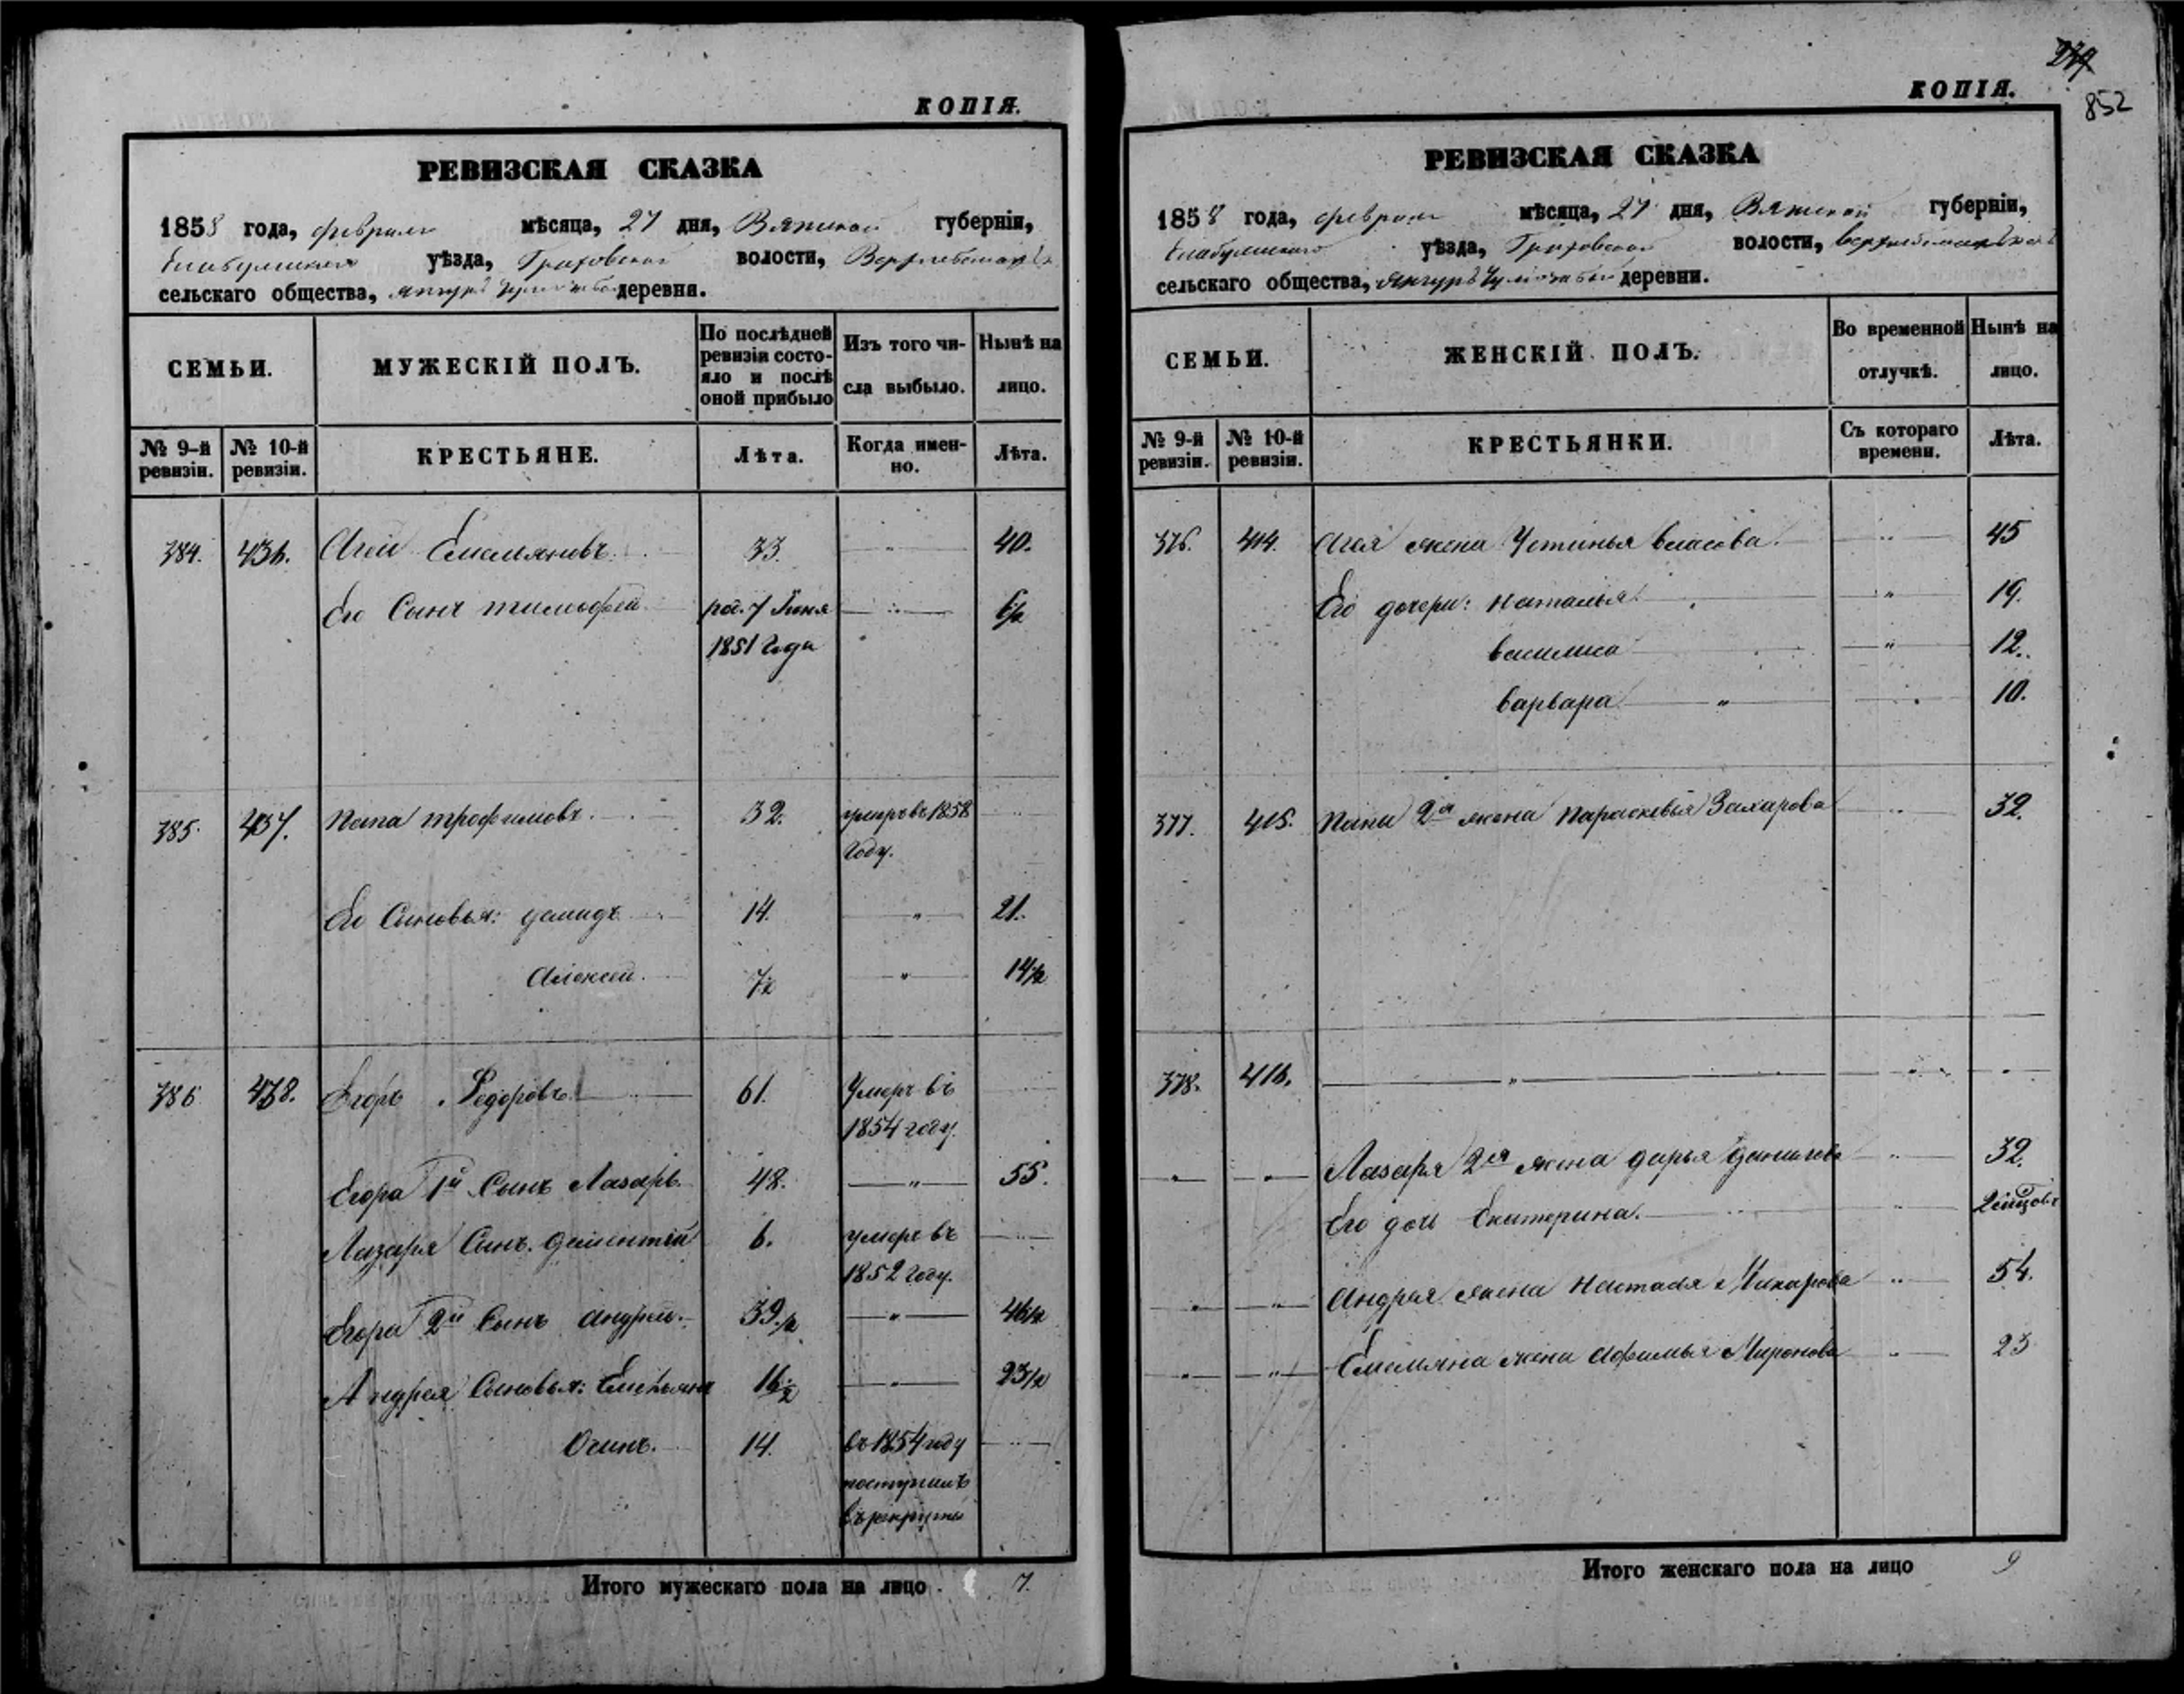 КОПІЯ.
РЕВИЗСКАЯ СКАЗКА
1858 года, февраля мѣсяца, 27 дня, Вятской губерніи,
Елабужскаго уѣзда, Граховской волости,
сельскаго общества, деревня.
СЕМЬИ. МУЖЕСКІЙ ПОЛЪ. По послѣдней ревизіи состояло и послѣ оной прибыло Изъ того числа выбыло. Нынѣ на лицо.
№ 9-й ревизіи. № 10-й ревизіи. КРЕСТЬЯНЕ. Лѣта. Когда именно. Лѣта.
384. 436. Агей Емельяновъ. 33. 40.
Его Сынъ тимофей род. 7 Іюня 6½
1851 Года
385. 437. Папа трофимовъ. 32. умеръ въ 1858
Году.
Его Сыновья: демидъ 14. " 21.
Алексей. 7½ " 14½
386 438. Егоръ Федоровъ 61. Умеръ въ
1854 году.
Егора 1й Сынъ Лазарь. 48. " 55.
Лазаря Сынъ дементій 6. умеръ въ
1852 Году.
Егора 2й Сынъ андрей. 39.½ " 46½
Андрея Сыновья: Емельянъ 16½ " 23½
Осипъ. 14. въ 1854 году
поступилъ
въ рекруты
Итого мужескаго пола на лицо 7.
279
КОПІЯ.
852
РЕВИЗСКАЯ СКАЗКА
1858 года, февраля мѣсяца, 27 дня, Вятской губерніи,
Елабужскаго уѣзда, Граховской волости,
сельскаго общества, деревни.
СЕМЬИ. ЖЕНСКІЙ ПОЛЪ. Во временной отлучкѣ. Нынѣ на лицо.
№ 9-й ревизіи. № 10-й ревизіи. КРЕСТЬЯНКИ. Съ котораго времени. Лѣта.
376. 414. Агея жена Устинья власова. " 45
Его дочери: наталья " 19.
василиса " 12.
варвара " 10.
377. 415. Папы 2я жена парасковья Захарова " 32.
378. 416. "
" " Лазаря 2я жена дарья данилова " 32.
Его дочь Екатерина. "
" " Андрея жена настасья Макарова " 54.
" " Емельяна жена Афимья Миронова " 23
Итого женскаго пола на лицо 9